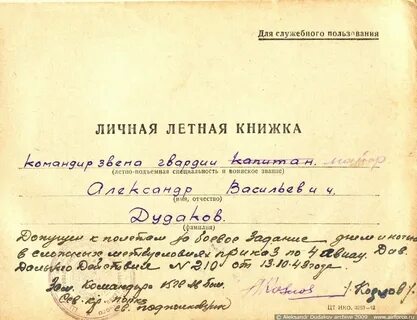 Для служебного пользования
ЛИЧНАЯ ЛЕТНАЯ КНИЖКА
командир звена гвардии капитан. майор
(летно-подъемная специальность и воинское звание)
Александр Васильевич
(имя, отчество)
Дудаков.
(фамилия)
Допущен к полетам на боевое задание днем и ночью
в сложных метеоусловиях приказ по 4 авиац. Див.
Дальнего Действия №210 от 13.10.43 года.
Зам. Командира
Гв. подполковник
© Aleksandr Dudakov archive 2009 www.airforce.ru